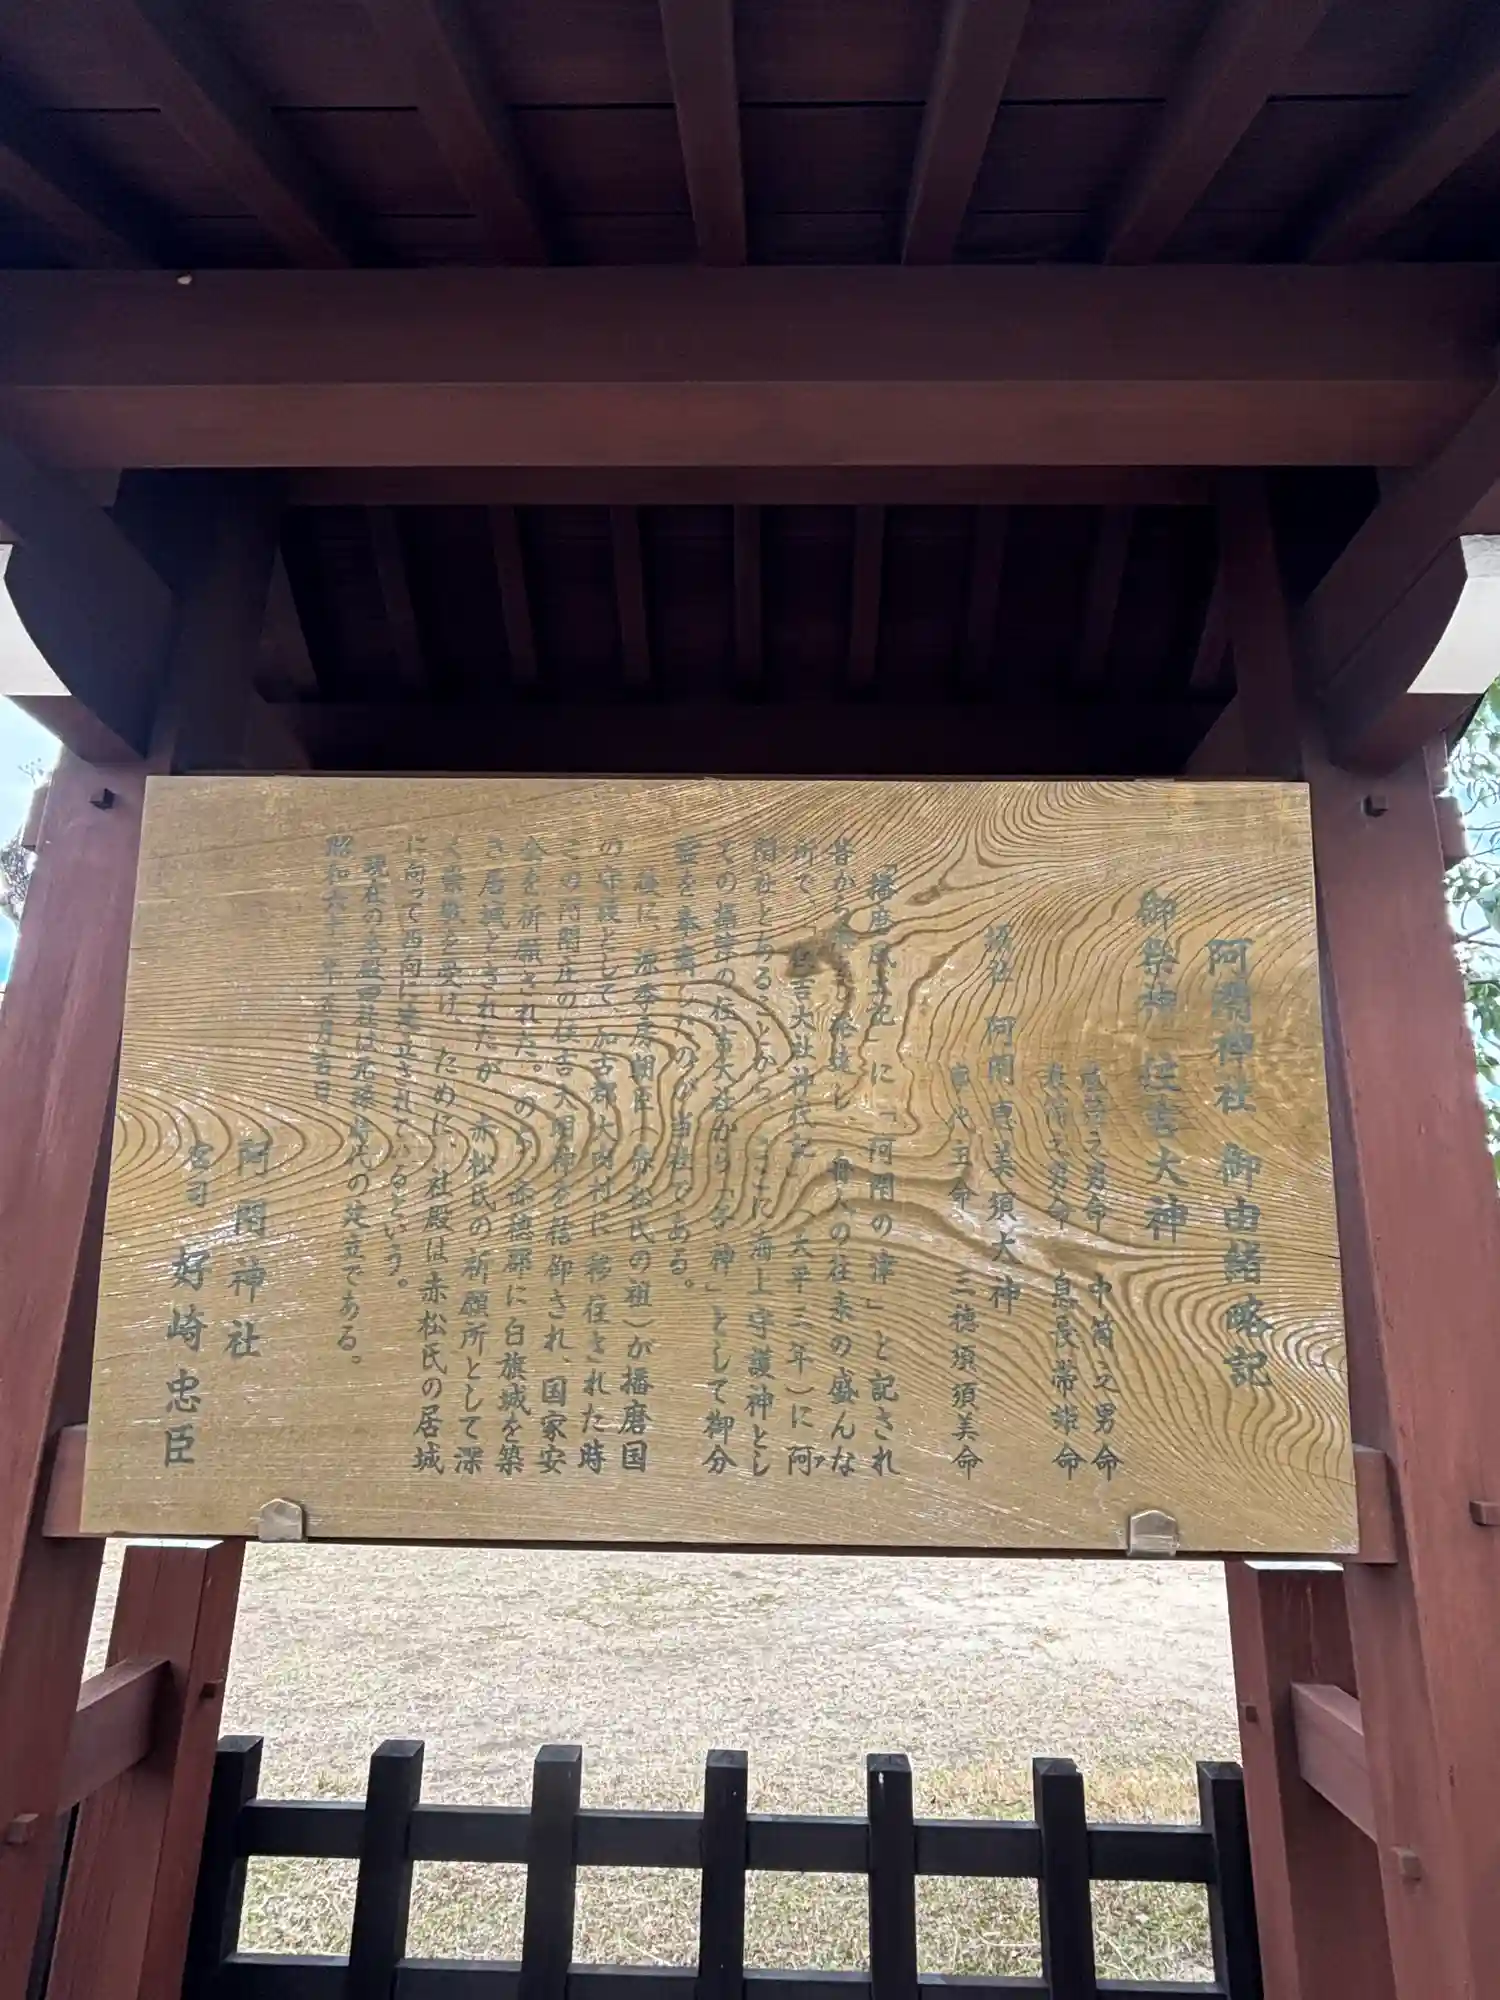 阿閇神社 御由緒略記
御祭神 住吉大神
底筒之男命 中筒之男命
表筒之男命 息長帯雄命
摂社 阿閇恵美須大神
事代主命 三穂須須美命
「播磨風土記」に「阿閇の津」と記され
昔から 舟人の往来の盛んな
所で、「住吉大社神代記」(天平三年)に阿
閇社とあることから、ここに海上守護神とし
ての摂津の住吉大社から「客神」として御分
霊を奉斎したのが当社である。
後に、源季房朝臣(赤松氏の祖)が播磨国
の守護として加古郡大内村に移住された時
この阿閇庄の住吉大明神を信仰され、国家安
全を祈願された。のち赤穂郡に白旗城を築
き居城とされたが、赤松氏の祈願所として深
く崇敬を受け、ために、社殿は赤松氏の居城
に向って西向に建立されているという。
現在の本殿四社は元禄時代の建立である。
昭和六十 年五月吉日
阿閇神社
宮司 好崎忠臣